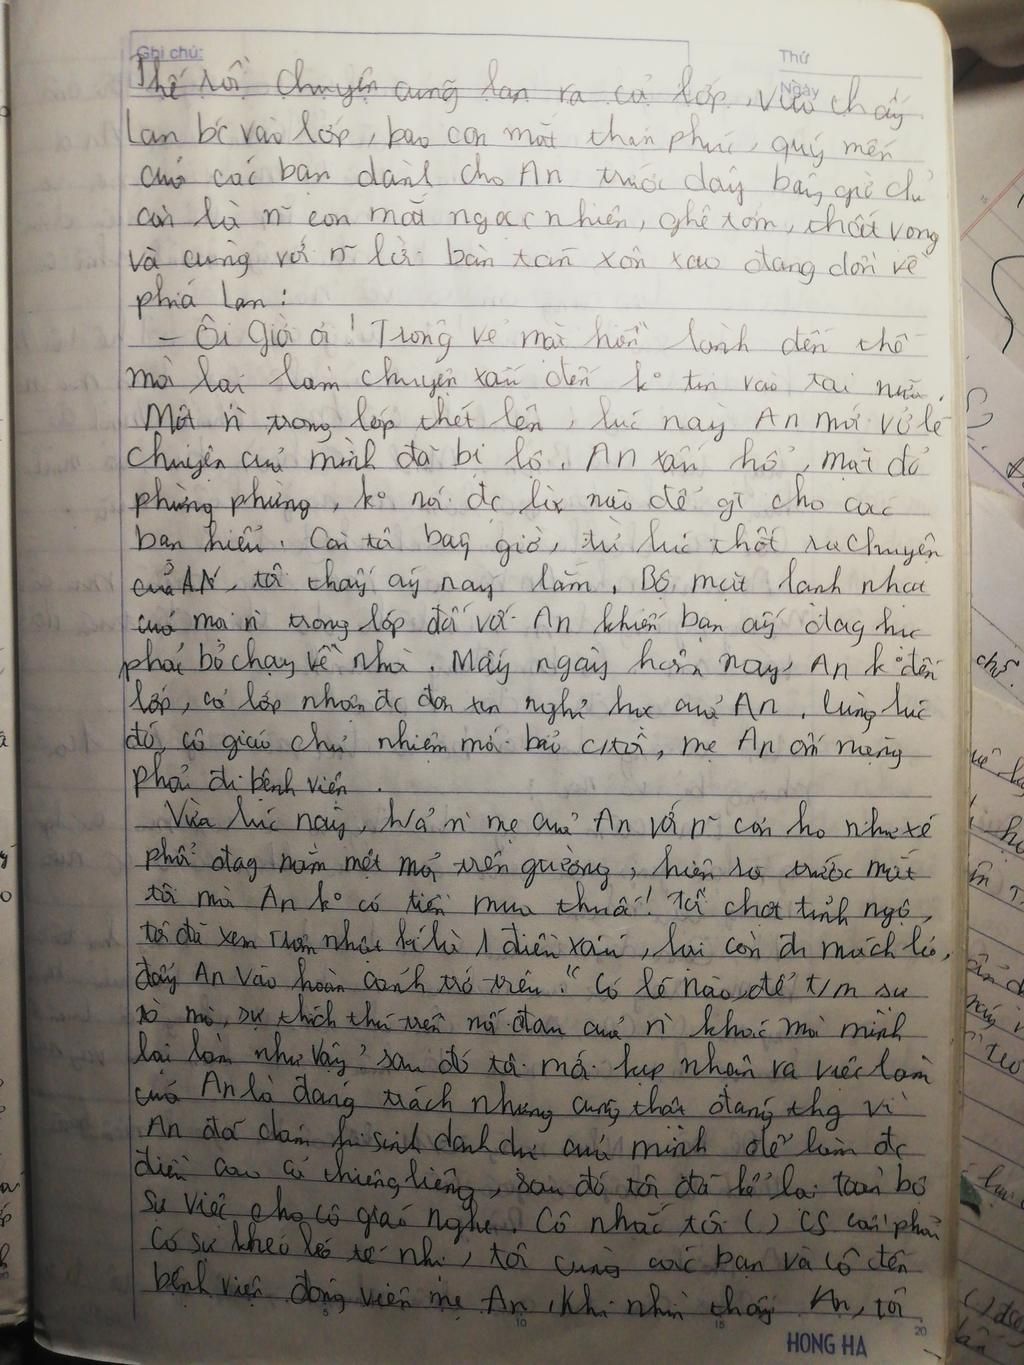 Ghi chú:
Thứ
Ngày
Thế rồi chuyện cũng lan ra cả lớp, vừa thấy
Lan bc vào lớp, bao con mắt thán phục, quý mến
của các bạn dành cho An trước đây bây giờ chỉ
còn là n~ con mắt ngạc nhiên, ghê tởm, thất vọng
và cùng với n~ lời bàn tán xôn xao đang dồn về
phía Lan:
– Ôi giời ơi! Trông vẻ mặt hiền lành đến thế
mà lại làm chuyện xấu đến k° tin vào tai nữa.
Một ng` trong lớp thét lên, lúc này An mới vỡ lẽ
chuyện của mình đã bị lộ. An xấu hổ, mặt đỏ
phừng phừng, k° nói đc lời nào để gt cho các
bạn hiểu. Còn tôi bây giờ, từ lúc thốt ra chuyện
của AN, tôi thấy áy náy lắm. Bộ mặt lạnh nhạt
của mọi ng` trong lớp đối với An khiến bạn ấy đag học
phải bỏ chạy về nhà. Mấy ngày hôm nay, An k° đến
lớp, cả lớp nhận đc đơn xin nghỉ học của An. Cùng lúc
đó, cô giáo chủ nhiệm mới báo c/tôi, mẹ An ốm nặng
phải đi bệnh viện.
Vừa lúc này, h/ả ng` mẹ của An với n~ cơn ho như xé
phổi đag nằm một mình trên giường, hiện ra trước mắt
tôi mà An k° có tiền mua thuốc! Tôi chợt tỉnh ngộ,
tôi đã xem trộm nhật kí là 1 điều xấu, lại còn đi mách lẻo,
đẩy An vào hoàn cảnh trớ trêu. "Có lẽ nào, để t/m sự
tò mò, sự thích thú trên nỗi đau của ng` khác mà mình
lại làm như vậy" sau đó tôi mới kịp nhận ra việc làm
của An là đáng trách nhưng cũng thật đáng thg vì
An đã dám hi sinh danh dự của mình để làm đc
điều cao cả thiêng liêng, sau đó tôi đã kể lại toàn bộ
sự việc cho cô giáo nghe. Cô nhắc tôi ( ) CS cần phải
có sự khéo léo tế nhị, tôi cùng các bạn và cô đến
bệnh viện động viên mẹ An. Khi nhìn thấy An, tôi
HONG HA